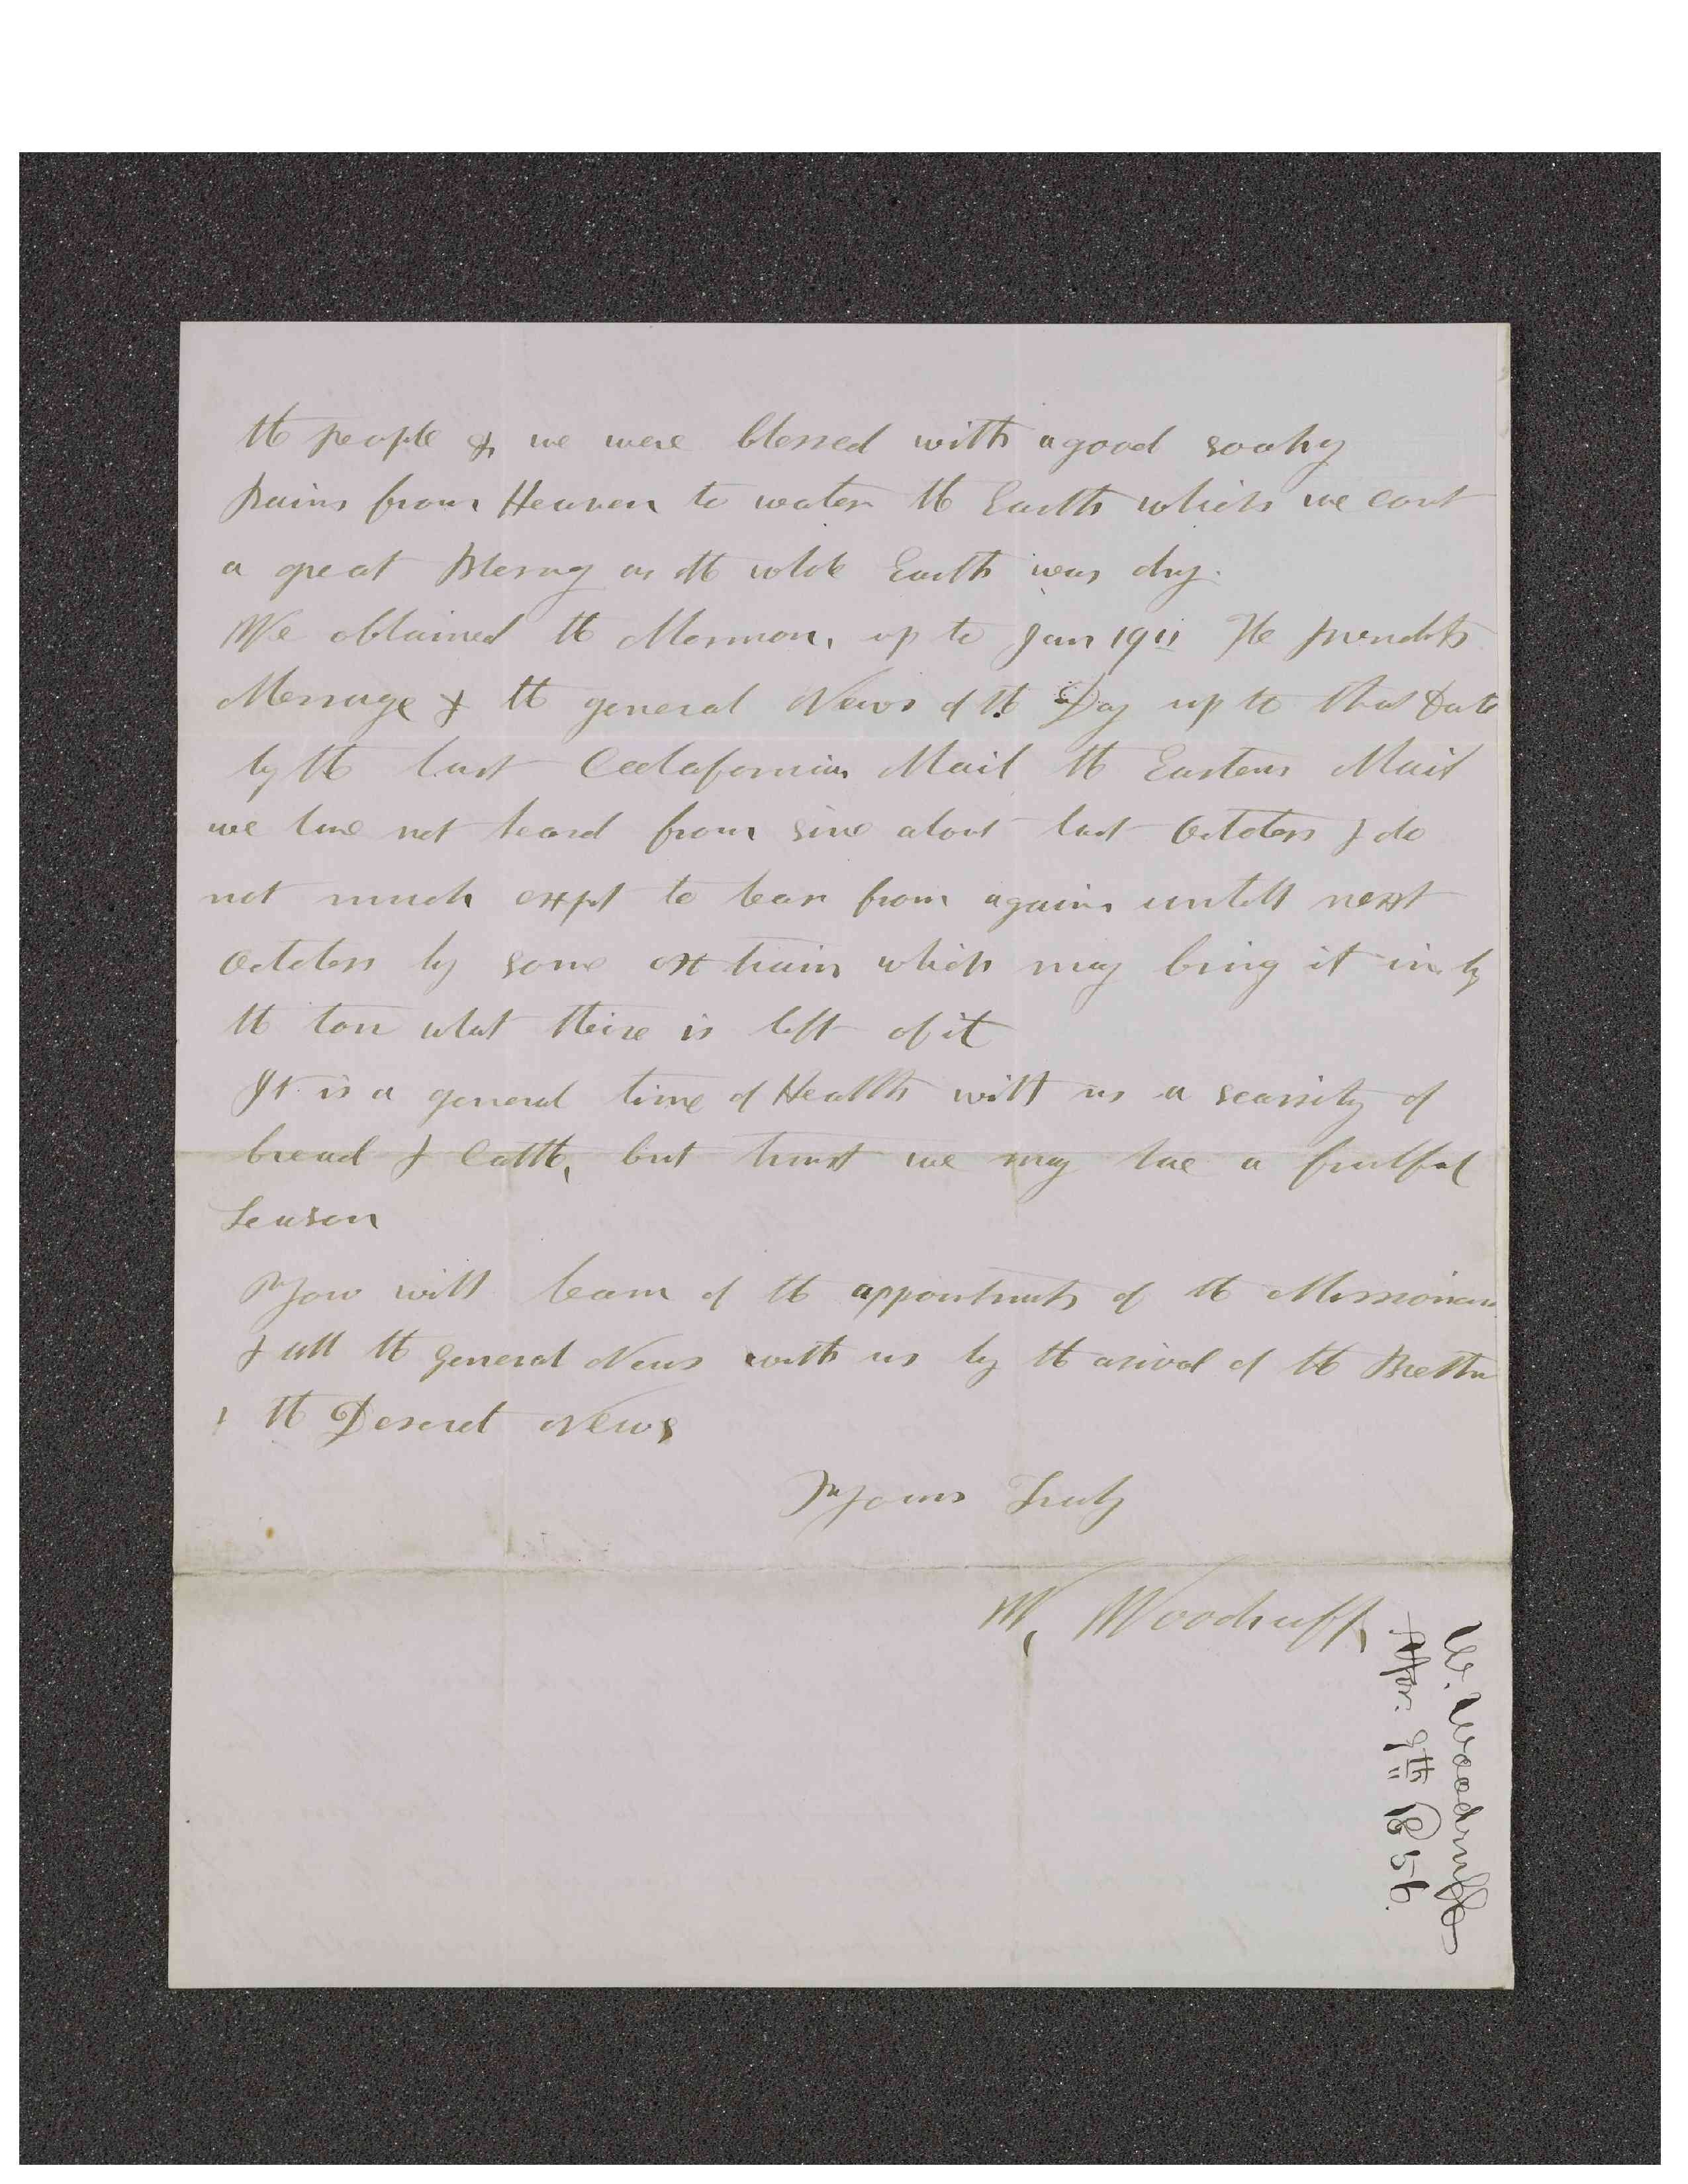 the people & we were blessed with a good soaky
Rains from Heaven to water the Earth which we cout
a great Blessing as the whole Earth was dry.
We obtained the Mormon, up to Jan 19th The presidets
Message & the general News of the Day up to that Date
by the last Calafornian Mail the Eastern Mail
we have not heard from sinc about last October I do
not much expet to hear from again untill next
October by some ox train which may bring it in by
the ton what theire is left of it
It is a general time of Health with us a scarsity of
bread & Cattle, but trust we may have a fruitful
Season
You will learn of the appointments of the Missionaries
& all the general News with us by the arival of the Brethren
& the Deseret News
Yours Truly
W. Woodruff
W. Woodruff
Apr. 9th 1856.